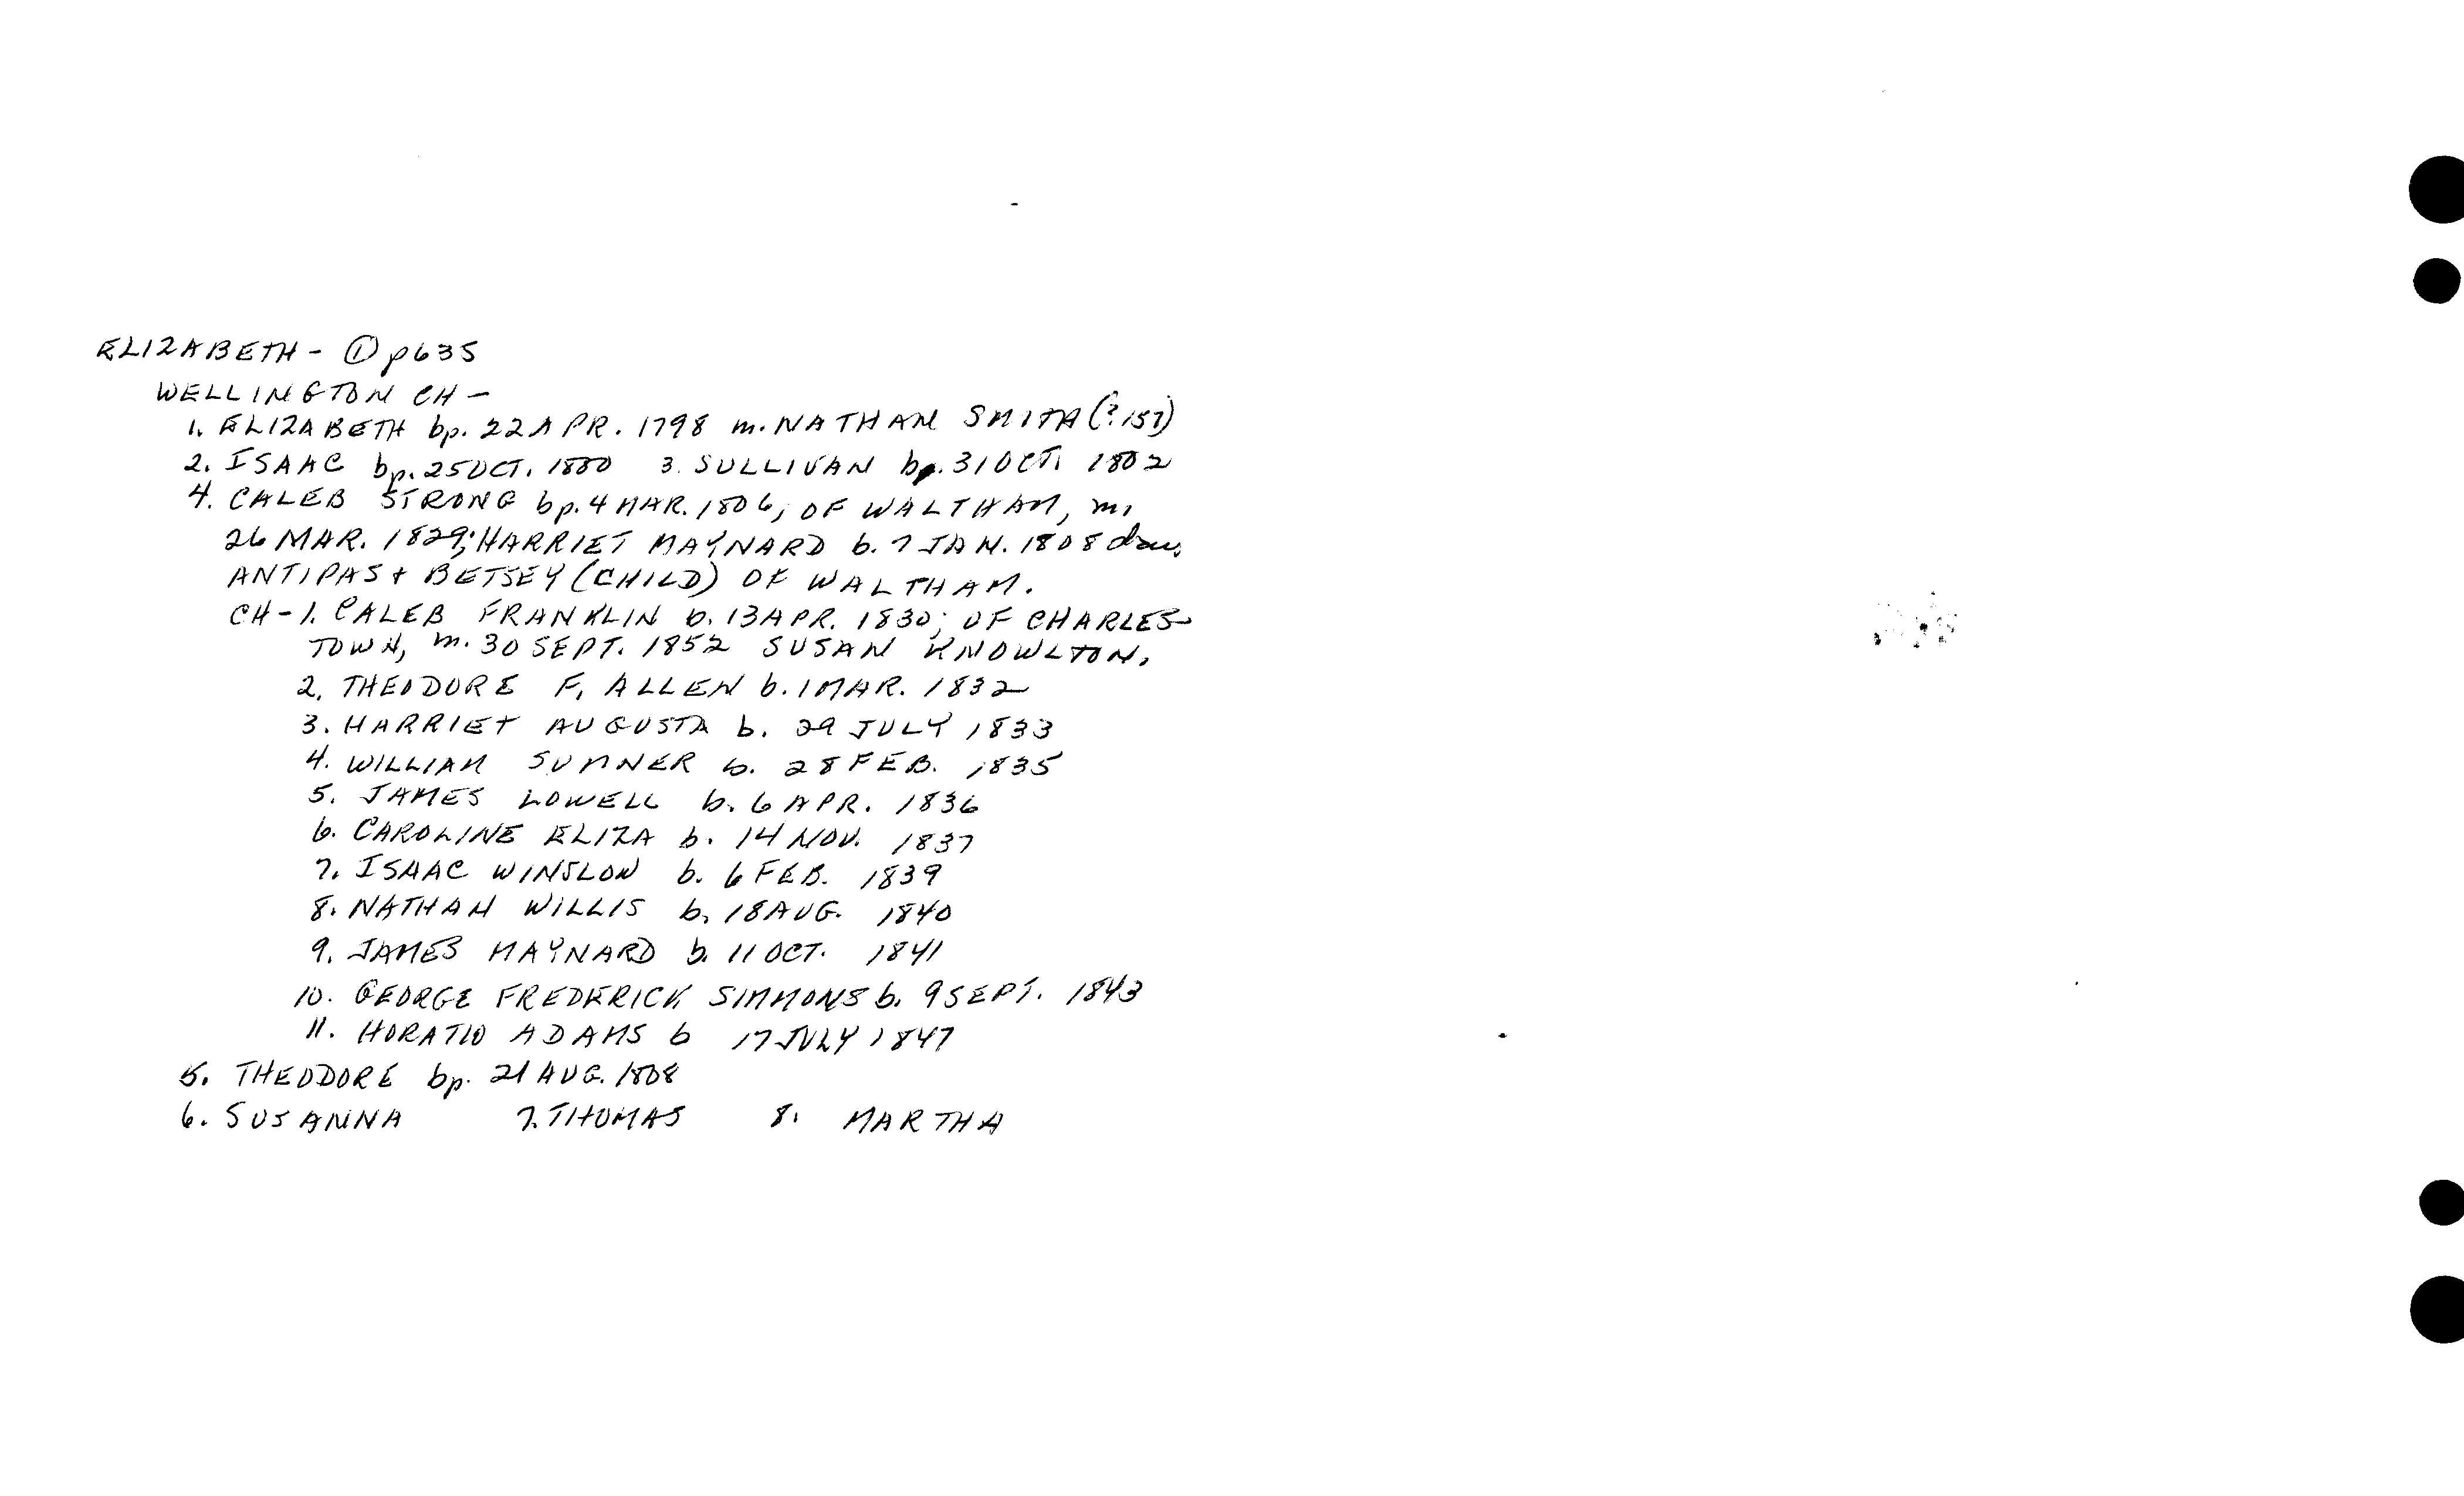 ELIZABETH - ① p635
WELLINGTON CH -
1. ELIZABETH bp. 22 APR. 1798 m. NATHAN SMITH (? 157)
2. ISAAC bp. 25 OCT. 1800 3. SULLIVAN bp. 31 OCT. 1802
4. CALEB STRONG bp. 4 MAR. 1806; OF WALTHAM, m.
26 MAR. 1829; HARRIET MAYNARD b. 7 JAN. 1808 dau.
ANTIPAS + BETSEY (CHILD) OF WALTHAM.
CH - 1. CALEB FRANKLIN b. 13 APR. 1830; OF CHARLES-
TOWN, m. 30 SEPT. 1852 SUSAN KNOWLTON.
2. THEODORE F. ALLEN b. 1 MAR. 1832
3. HARRIET AUGUSTA b. 29 JULY 1833
4. WILLIAM SUMNER b. 28 FEB. 1835
5. JAMES LOWELL b. 6 APR. 1836
6. CAROLINE ELIZA b. 14 NOV. 1837
7. ISAAC WINSLOW b. 6 FEB. 1839
8. NATHAN WILLIS b. 18 AUG. 1840
9. JAMES MAYNARD b. 11 OCT. 1841
10. GEORGE FREDERICK SIMMONS b. 9 SEPT. 1843
11. HORATIO ADAMS b 17 JULY 1847
5. THEODORE bp. 21 AUG. 1808
6. SUSANNA 7. THOMAS 8. MARTHA